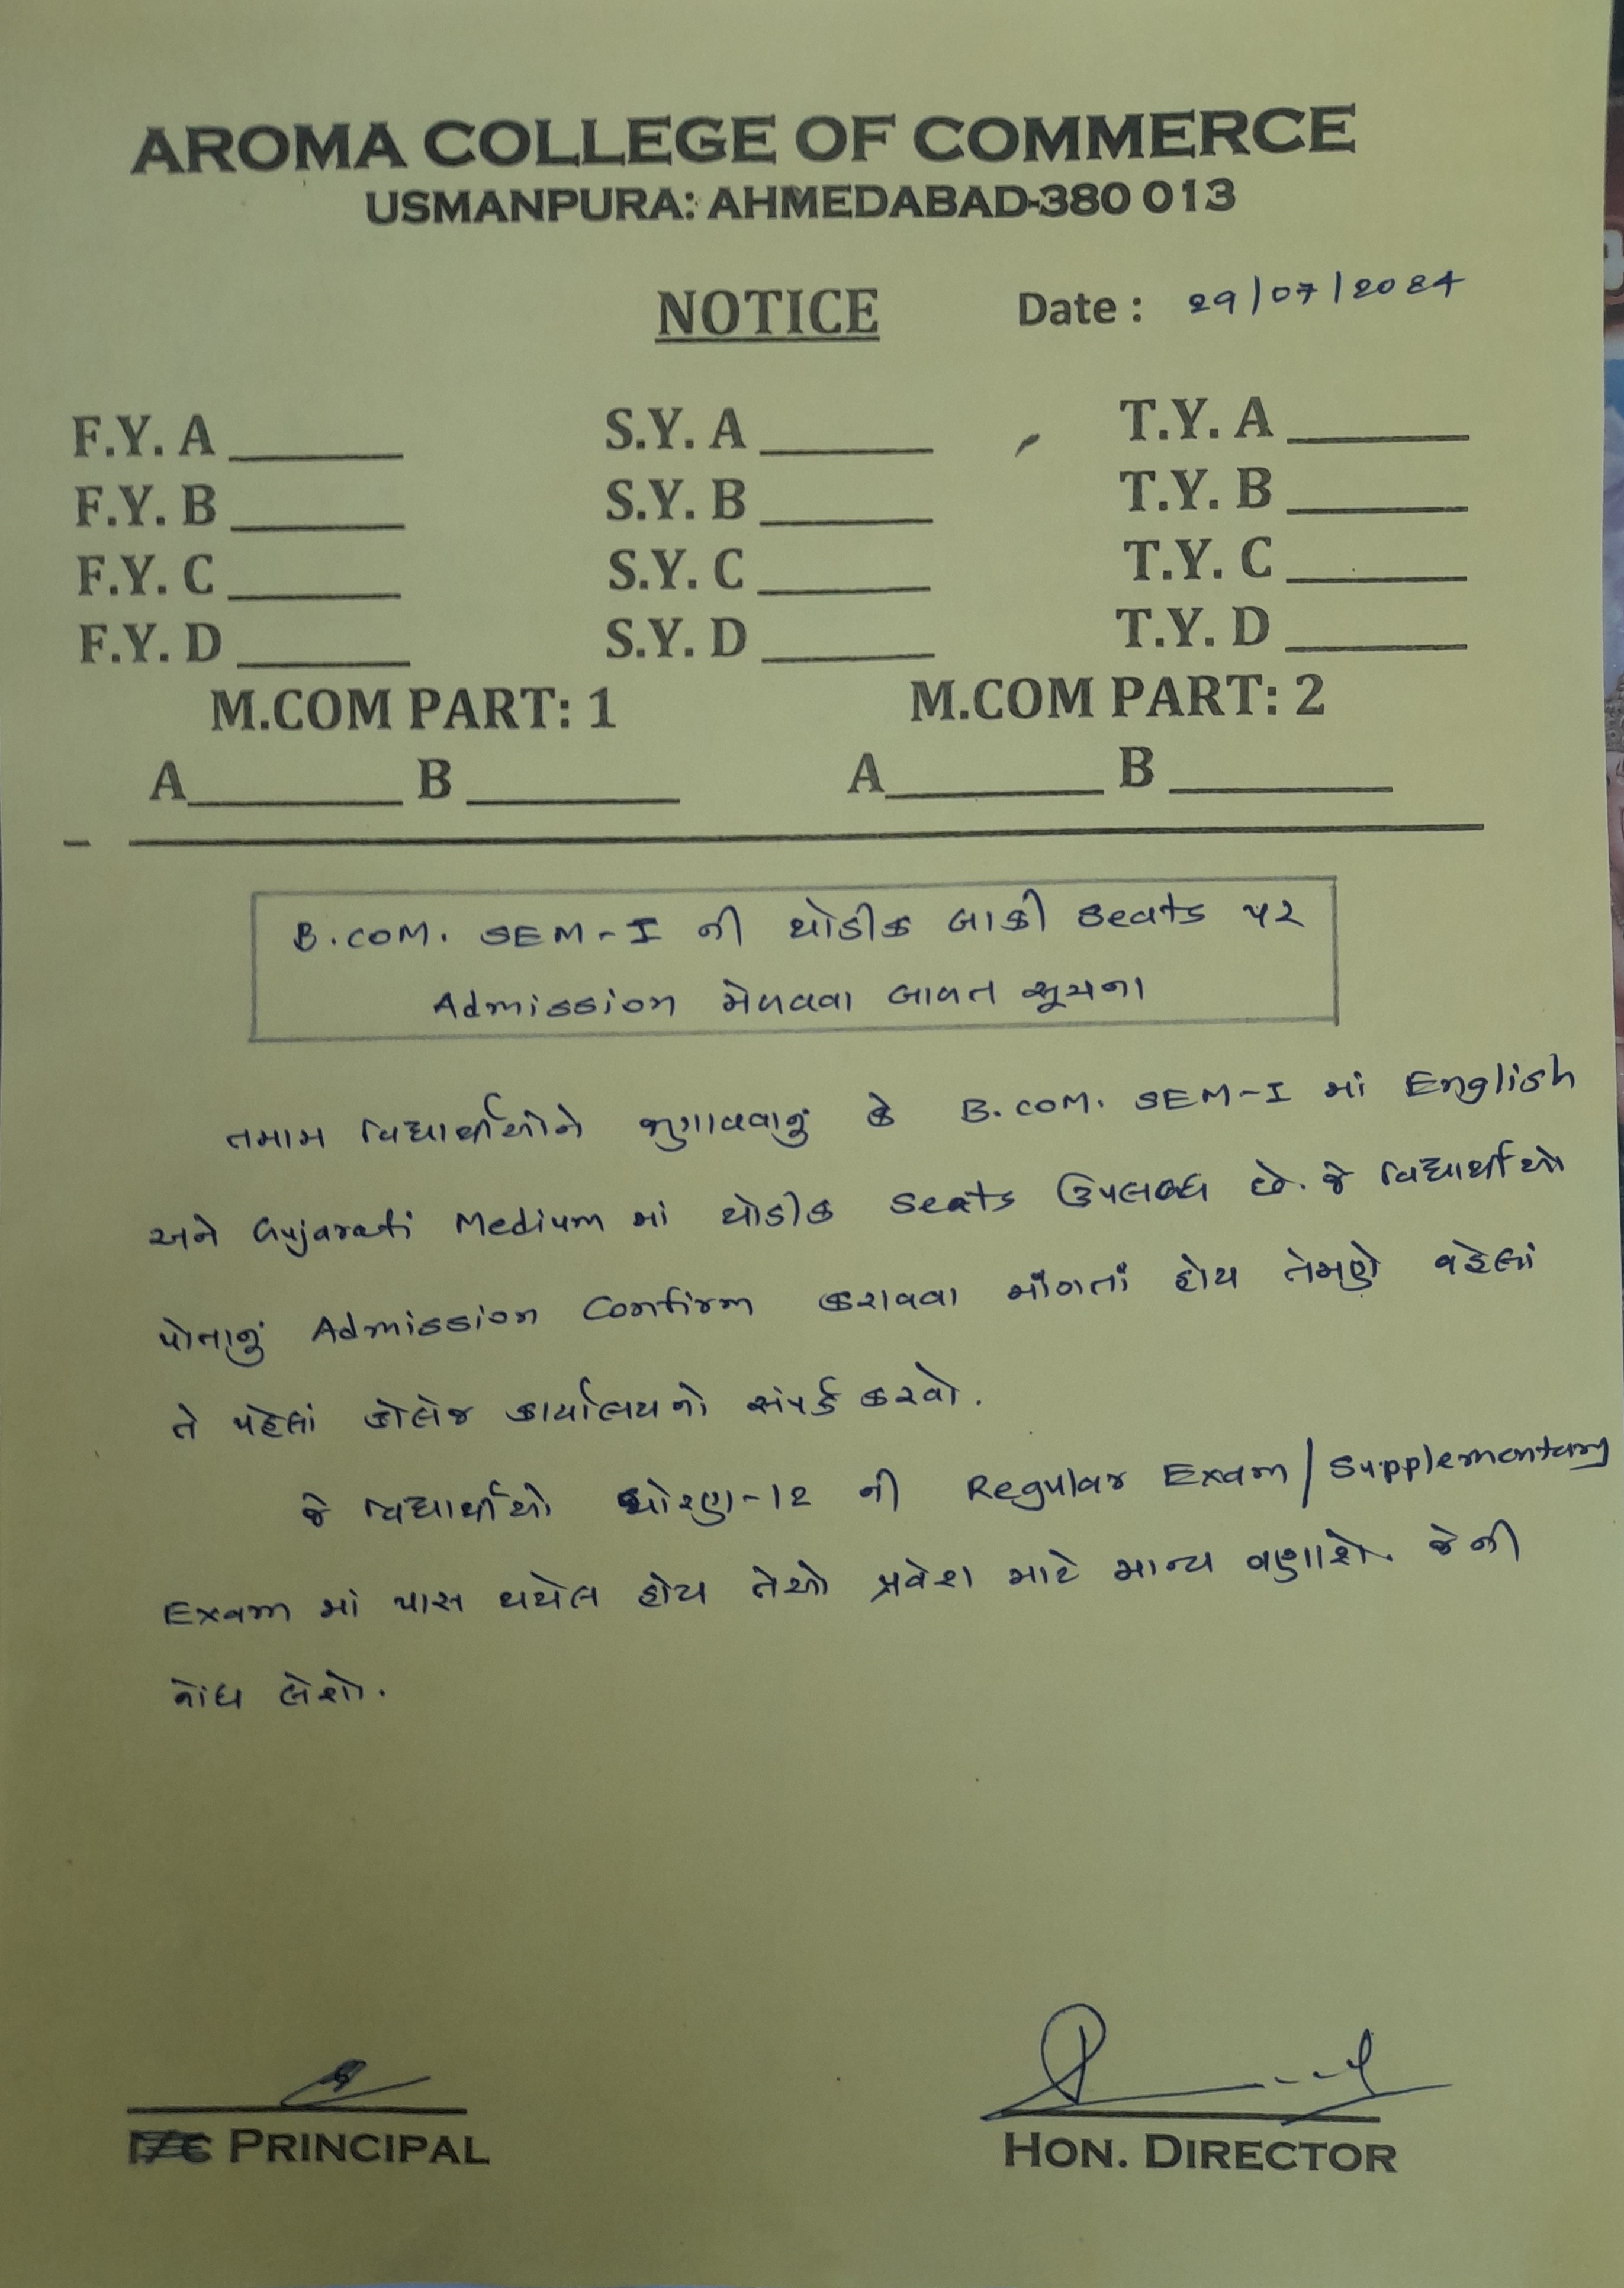 AROMA COLLEGE OF COMMERCE
USMANPURA: AHMEDABAD-380 013
NOTICE Date : 29/07/2024
F.Y. A ______ S.Y. A ______ T.Y. A ______
F.Y. B ______ S.Y. B ______ T.Y. B ______
F.Y. C ______ S.Y. C ______ T.Y. C ______
F.Y. D ______ S.Y. D ______ T.Y. D ______
M.COM PART: 1 M.COM PART: 2
A______ B ______ A______ B ______
B.COM. SEM-I ની થોડીક બાકી Seats પર
Admission મેળવવા બાબત સૂચના
તમામ વિદ્યાર્થીઓને જણાવવાનું કે B.COM. SEM-I માં English
અને Gujarati Medium માં થોડીક Seats ઉપલબ્ધ છે. જે વિદ્યાર્થીઓ
પોતાનું Admission Confirm કરાવવા માંગતાં હોય તેમણે વહેલાં
તે પહેલાં કોલેજ કાર્યાલયનો સંપર્ક કરવો.
જે વિદ્યાર્થીઓ ધોરણ-12 ની Regular Exam/Supplementary
Exam માં પાસ થયેલ હોય તેઓ પ્રવેશ માટે માન્ય ગણાશે. જેની
નોંધ લેશો.
PRINCIPAL HON. DIRECTOR